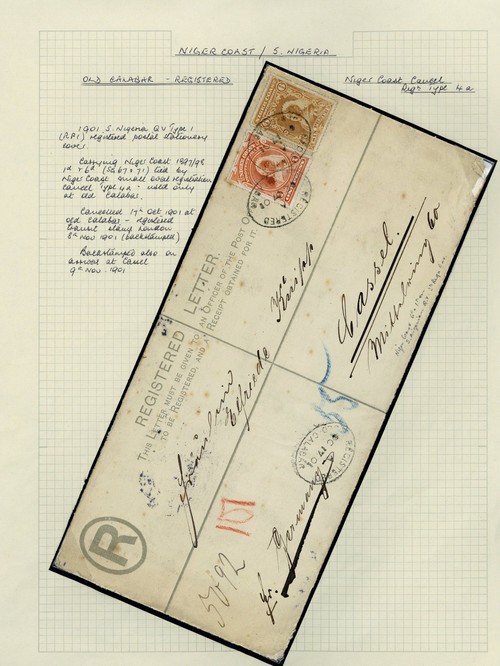 NIGER COAST / S. NIGERIA
OLD CALABAR - REGISTERED
Niger Coast Cancel
Regs Type 4a
1901 S. Nigeria QV Type 1
(RP1) registered postal stationery
cover.
Carrying Niger Coast 1897/98
1d & 6d (SG 67 & 71) tied by
Niger Coast small oval registration
cancel Type 4a - used only
at Old Calabar.
Cancelled 17th Oct 1901 at
Old Calabar - registered
transit stamp London
8th Nov 1901 (backstamped)
Backstamped also on
arrival at Cassel
9th Nov. 1901
REGISTERED LETTER.
THIS LETTER MUST BE GIVEN TO AN OFFICER OF THE POST O
TO BE REGISTERED, AND A RECEIPT OBTAINED FOR IT.
Fräulein
Elfriede Knipp
Cassel.
Germany
REGISTERED
OC 17 01
OLD CALABAR
REGISTERED
R
101
5692